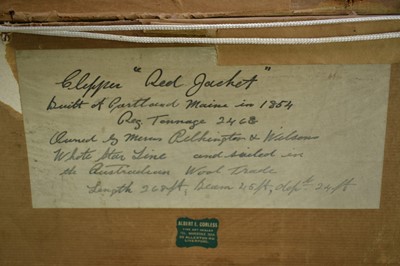 Clipper "Red Jacket"
built at Portland Maine in 1854
Reg. Tonnage 2468
Owned by Messrs Pilkington & Wilsons
White Star Line and sailed in
the Australian Wool Trade
Length 268ft, Beam 45ft, depth 24ft
ALBERT E.